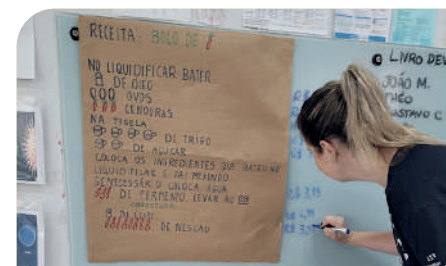 RECEITA: BOLO DE
NO LIQUIDIFICAR BATER:
DE ÓLEO
OVOS
CENOURAS
NA TIGELA
DE TRIGO
DE AÇUCAR
COLOCA OS INGREDIENTES QUE BATEU NO
LIQUIDIFICAR E VAI MEXENDO
SENECESSÁRIO COLOCA ÁGUA
DE FERMENTO. LEVAR AO
DE NESCAU
LIVRO DEV
JOÃO M.
THÉO
GUSTAVO C